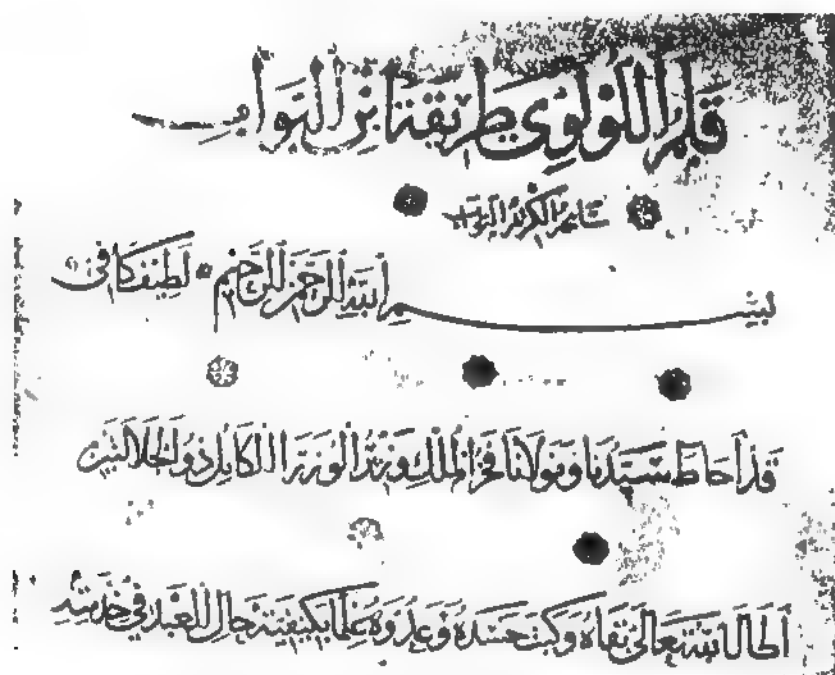 قلم اللولوي طريقة ابن البواب
بسم الله الرحمن الرحيم لطيف كافي
قد احاط سيدنا ومولانا فخر الملك وزير الوزرا الكامل ذو الجلالتين
اطال الله تعالى بقاه وكبت حسده وعدوه علما بكيفية حال العبد في خدمته